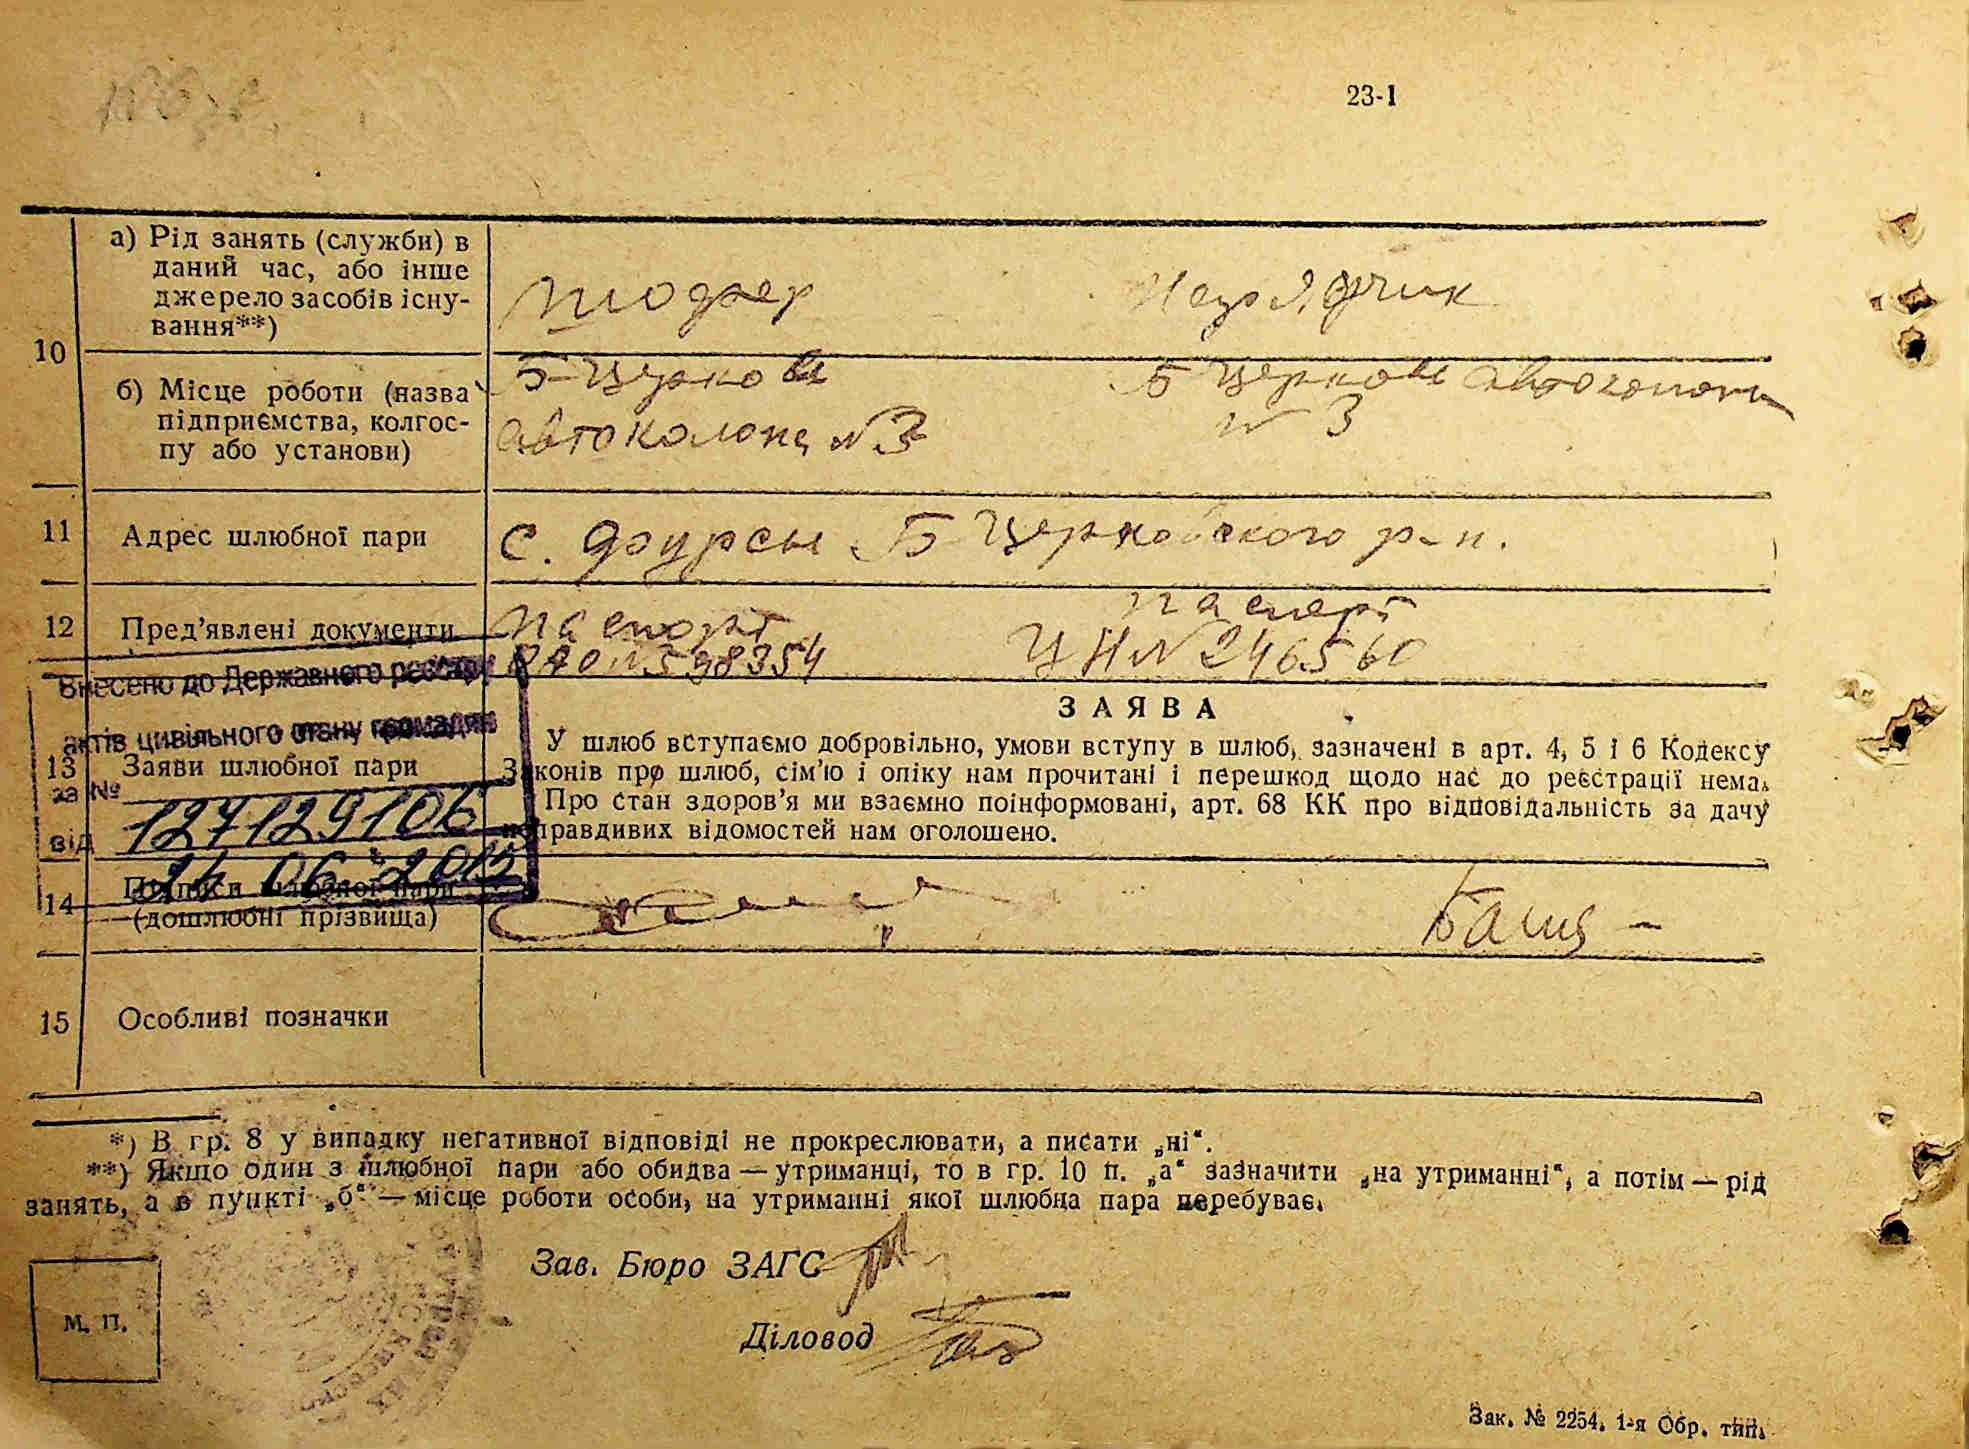 23-1
а) Рід занять (служби) в
даний час, або інше
джерело засобів існу-
вання**)
шофер
Нарядчик
10
б) Місце роботи (назва
підприємства, колгос-
пу або установи)
Б-Церкова
автоколона №3
Б Церкова автоколона
№ 3
11
Адрес шлюбної пари
с. Фурсы Б Церковского р-н.
12
Пред'явлені документи
паспорт
№ 598354
паспорт
ЦН № 246560
Внесено до Державного реєстру
актів цивільного стану громадян
за №
127129106
від
24 06 2015
13
Заяви шлюбної пари
ЗАЯВА
У шлюб вступаємо добровільно, умови вступу в шлюб, зазначені в арт. 4, 5 і 6 Кодексу
Законів про шлюб, сім'ю і опіку нам прочитані і перешкод щодо нас до реєстрації нема.
Про стан здоров'я ми взаємно поінформовані, арт. 68 КК про відповідальність за дачу
неправдивих відомостей нам оголошено.
14
Підписи шлюбної пари
(дошлюбні прізвища)
15
Особливі позначки
*) В гр. 8 у випадку негативної відповіді не прокреслювати, а писати „ні“.
**) Якщо один з шлюбної пари або обидва — утриманці, то в гр. 10 п. „а“ зазначити „на утриманні“, а потім — рід
занять, а в пункті „б“ — місце роботи особи, на утриманні якої шлюбна пара перебуває.
Зав. Бюро ЗАГС
Діловод
М. П.
Зак. № 2254. 1-я Обр. тип.